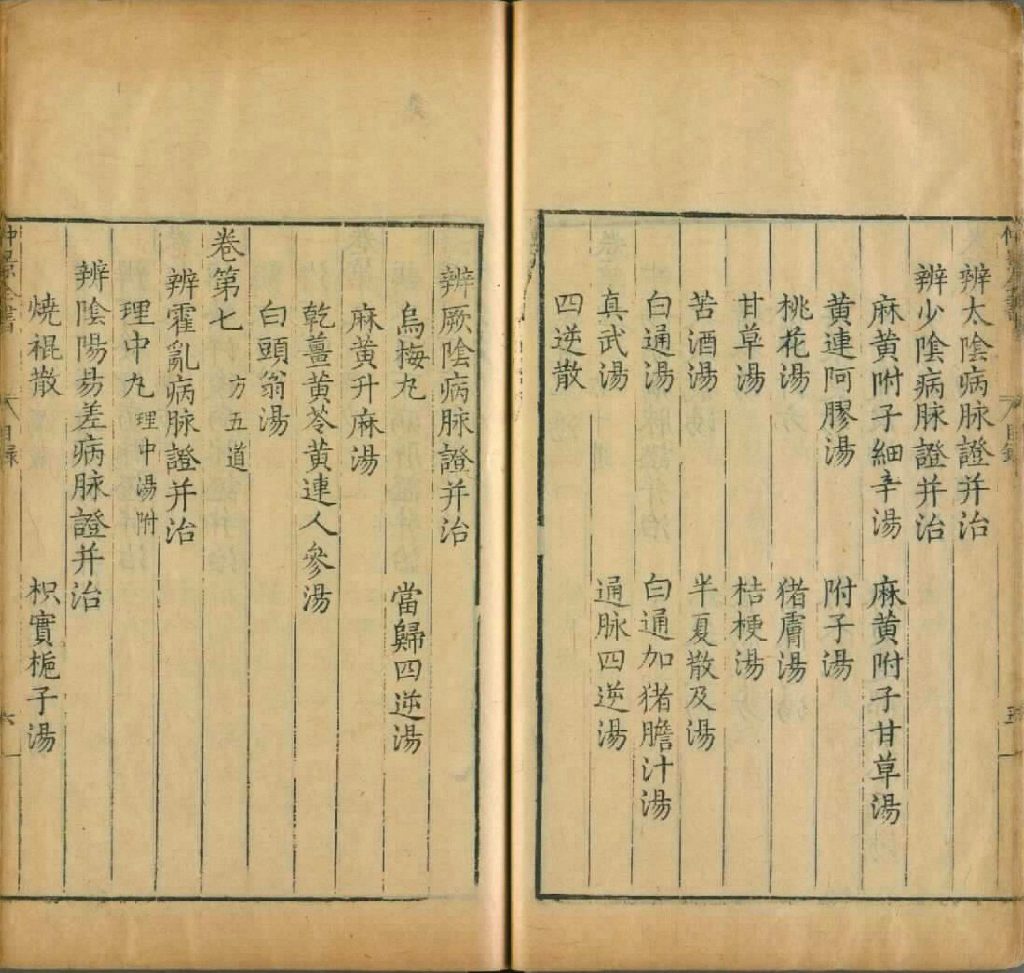 辨太陰病脉證并治
辨少陰病脉證并治
麻黄附子細辛湯 麻黄附子甘草湯
黄連阿膠湯 附子湯
桃花湯 猪膚湯
甘草湯 桔梗湯
苦酒湯 半夏散及湯
白通湯 白通加猪膽汁湯
真武湯 通脉四逆湯
四逆散
辨厥陰病脉證并治
烏梅丸 當歸四逆湯
麻黄升麻湯
乾薑黄芩黄連人參湯
白頭翁湯
卷第七 方五道
辨霍亂病脉證并治
理中丸 理中湯附
辨陰陽易差病脉證并治
燒裩散 枳實梔子湯
目録
六